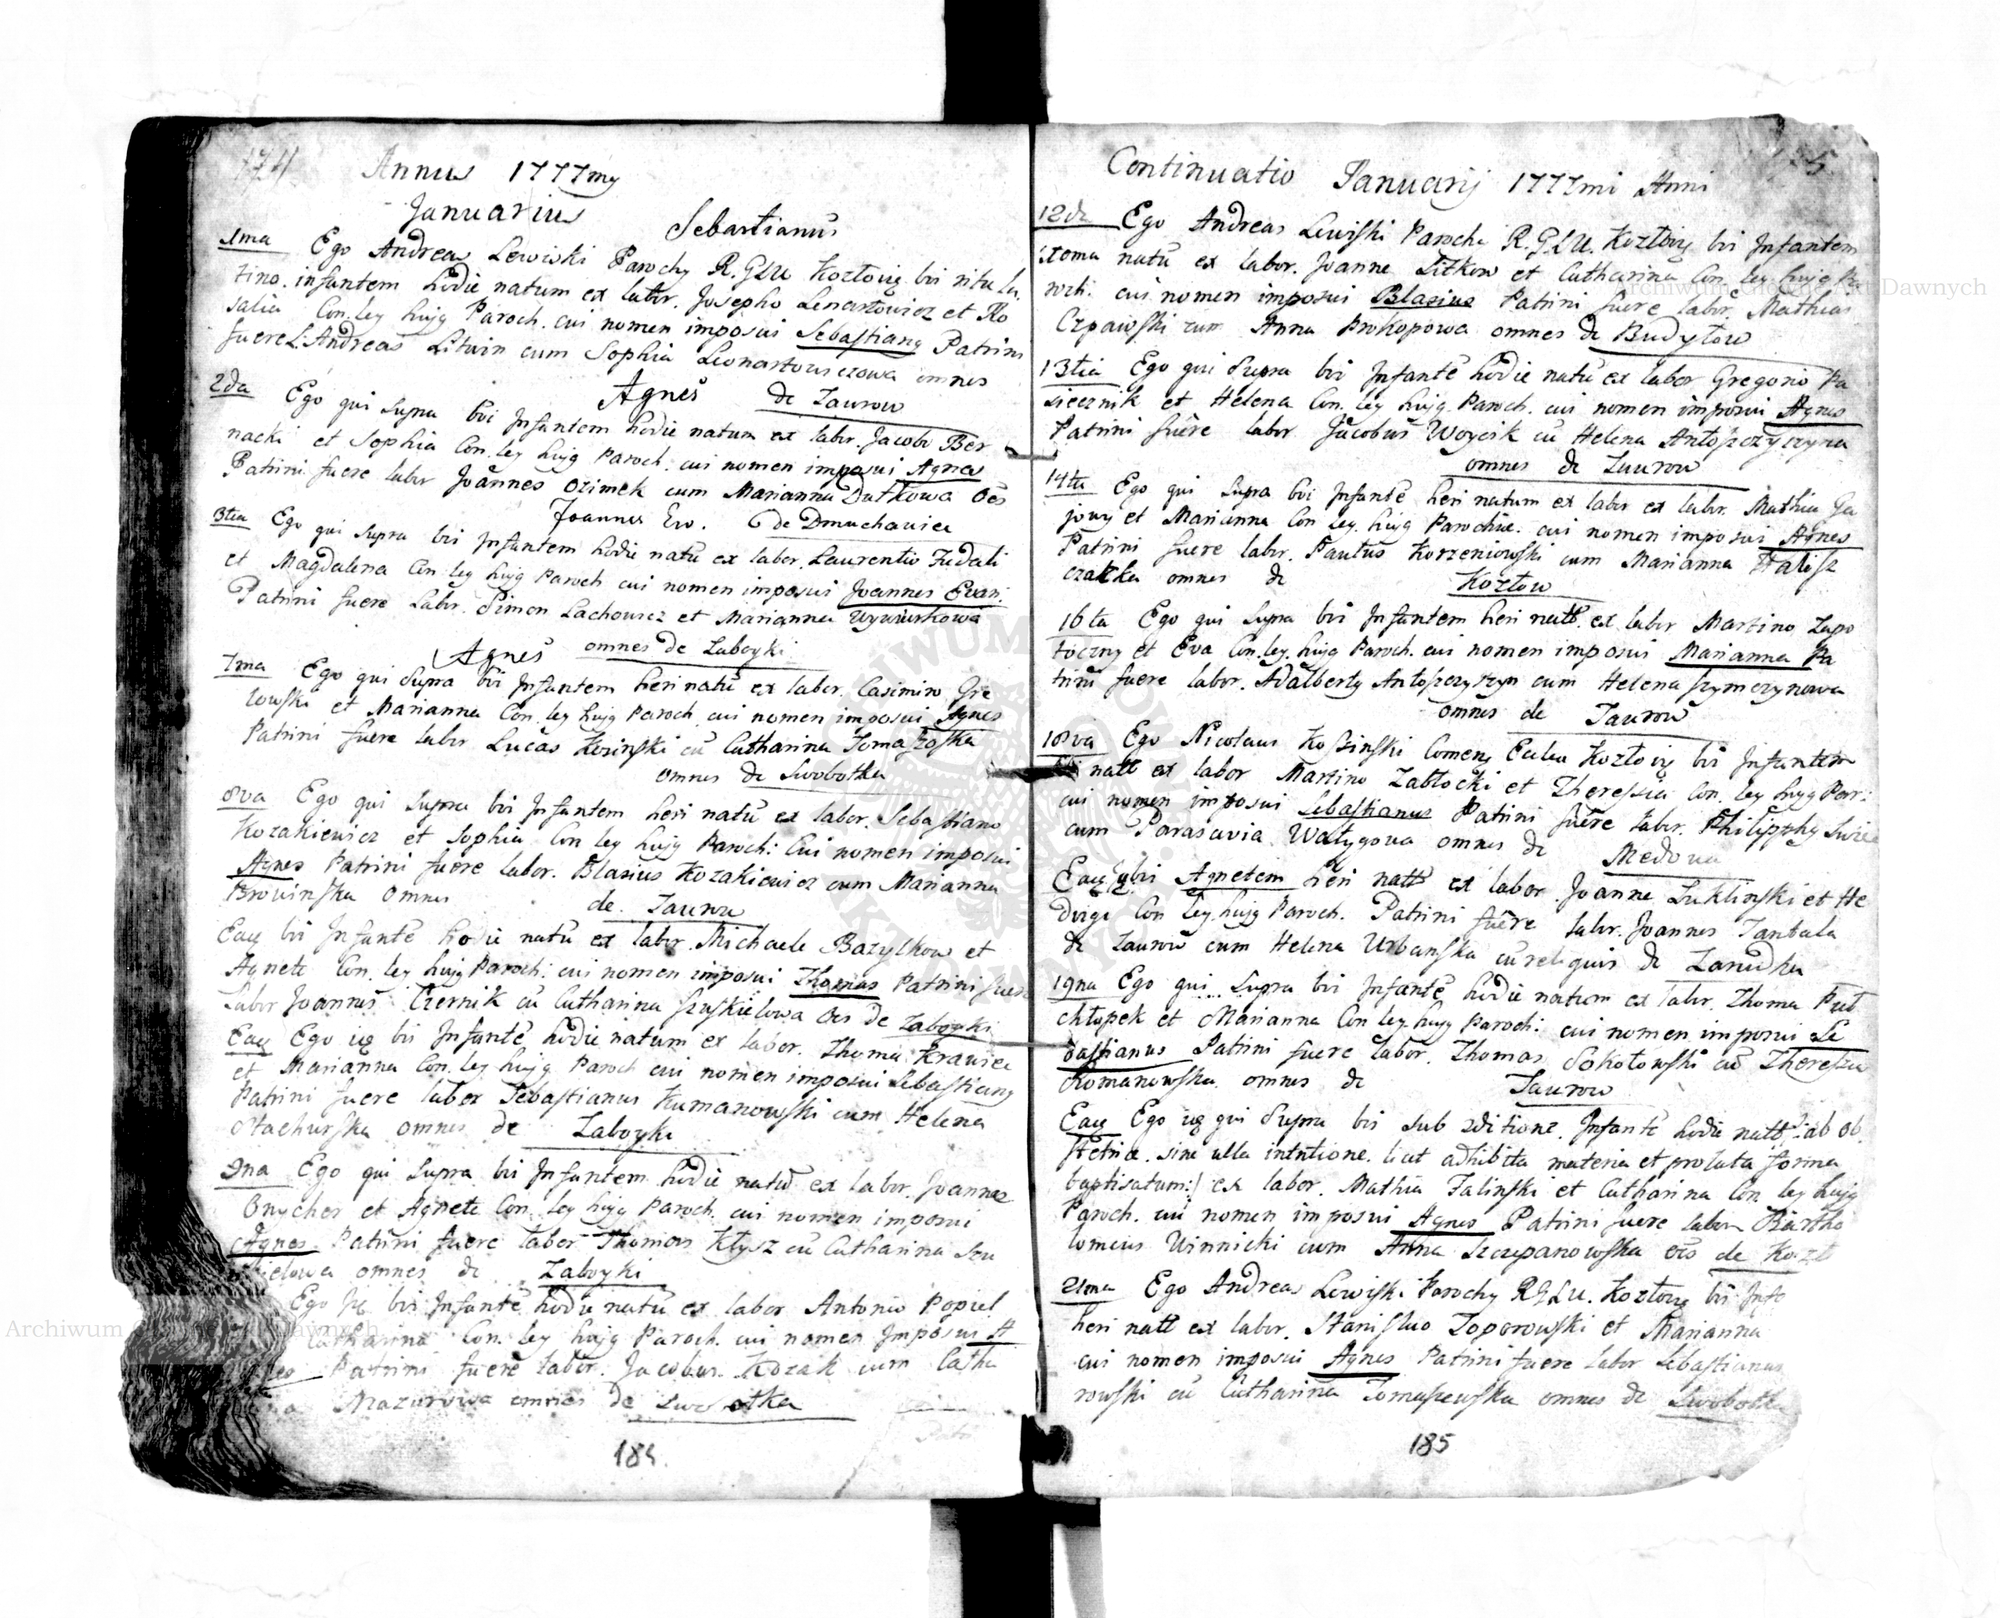 174 Annus 1777my
Januarius Sebastianus
1ma Ego Andreas Lewiski Parochy R.GLU Kozłowię bvi ritu La
tino. infantem hodie natum ex labor. Josepho Lenartowicz et Ro
salia Con. ley hujg Paroch. cui nomen imposui Sebastiang Patrini
fuere L. Andreas Litwin cum Sophia Leonartowiczowa omnes
Agnes de Taurow
2da Ego qui supra bvi Jnfantem hodie natum ex labr. Jacobo Ber
nacki et Sophia Con. ley hujg Paroch. cui nomen imposui Agnes
Patrini fuere labr Joannes Ozimek cum Marianna Dutkowa oes
Joannes Ew. de Dmuchawica
3tia Ego qui supra bvi Jnfantem hodie natū ex labor. Laurentio Fudali
et Magdalena Con ley hujg Paroch cui nomen imposui Joannes Evan.
Patrini fuere Labr. Simon Lachowicz et Marianna Wywiurkowa
Agnes omnes de Zaboyki
7ma Ego qui supra bvi Jnfantem heri natū ex labor. Casimiro Gre
lowski et Marianna Con. ley hujg Paroch. cui nomen imposui Agnes
Patrini fuere labr Lucas Kozinski cū Catharina
omnes de Swobotka
8va Ego qui supra bvi Jnfantem heri natū ex labor. Sebastiano
Kozakiewicz et Sophia Con ley hujg Paroch: Cui nomen imposui
Agnes Patrini fuere labor. Blasius Kozakiewicz cum Marianna
Browinska omnes de. Taurow
Eaę bvi Jnfantē hodie natū ex labr. Michaele Bazylkow et
Agnete Con. ley hujg Paroch: cui nomen imposui Thomas Patrini fuere
labor Joannes Czernik cū Catharina Szuskielowa oes de Zaboyki
Eaę Ego ię bvi Jnfantē hodie natum ex labor. Thoma Krawiec
et Marianna Con. ley hujg Paroch cui nomen imposui Sebastiang
Patrini fuere labor Sebastianus Kumanowski cum Helena
Stachurska omnes de Zaboyki
9na Ego qui supra bvi Jnfantem hodie natū ex labr. Joannes
Onycher et Agnete Con. ley hujg Paroch. cui nomen imposui
Agnes. Patrini fuere labor Thomas Kłysz cū Catharina Szu
ielowa omnes de Zaboyki
Ego bvi Jnfantē hodie natū ex labor Antonio Popiel
Catharina Con. ley hujg Paroch. cui nomen Jmposui A
Patrini fuere labor. Jacobus Kozak cum Catha
Mazurowa omnes de
184.
Continuatio Januarij 1777mi Anni
12da Ego Andreas Lewiski Parochi R.GLU. Kozłowię bvi Jnfantem
natū ex labor. Joanne Litkow et Catharina Con. ley hujg Pa
rochi. cui nomen imposui Blasius Patrini fuere labor. Mathias
Czpawski cum Anna Prokopowa omnes de Budyłow
13tia Ego qui supra bvi Jnfantē hodie natū ex labor Gregorio Pa
siecznik et Helena Con. ley hujg. Paroch. cui nomen imposui Agnes
Patrini fuere labor Jacobus Woycik cū Helena Antoszczyszyna
omnes de Taurow
14ta Ego qui supra bvi Jnfantē heri natum ex labr ex labr. Mathia Ga
jowy et Marianna Con ley. hujg Parochiæ. cui nomen imposui Agnes
Patrini fuere labr. Paulus Korzeniowski cum Marianna Walisz
czakka omnes de Kozłow
16ta Ego qui supra bvi Jnfantem heri natt. ex labr Martino Zapo
toczny et Eva Con. ley. hujg Paroch. cui nomen imposui Marianna Pa
trini fuere labor. Adalberty Antoszczyszyn cum Helena Szymczynowa
omnes de Taurow
18va Ego Nicolaus Koszinski Comeng Ecclea Kozłowię bvi Jnfantem
natt ex labor Martino Zabłocki et Theressia Con. ley hujg Par:
cui nomen imposui Sebastianus Patrini fuere labr. Philippg
cum Parascevia Wałygowa omnes de Medowa
Eaę bvi Agnetem heri natt ex labor Joanne Suklinski et He
dvige Con ley. hujg Paroch. Patrini fuere labr. Joannes Tantala
de Taurow cum Helena Urbanska cū reliquis de Zarudka
19na Ego qui supra bvi Jnfantē hodie natum ex labr. Thoma Put
chłopek et Marianna Con ley. hujg Paroch: cui nomen imposui Se
bastianus Patrini fuere labor. Thomas Sokołowski cū Theressia
Romanowska omnes de Taurow
Eaę Ego ię qui supra bvi sub conditione Jnfantē hodie natt: ab ob
stetrice. sine ulla intntione. licet adhibita materia et prolata forma
baptisatum:/ ex labor. Mathia Zalinski et Catharina Con. ley hujg
Paroch. cui nomen imposui Agnes Patrini fuere labor Bartho
lomeus Winnicki cum Anna Szczepanowska oēs de Kozł
21ma Ego Andreas Lewiski Parochy RGLU. Kozłowię bvi Jnfa
heri natt ex labor. Stanislao Toporowski et Marianna
cui nomen imposui Agnes Patrini fuere labor Sebastianus
rowski cū Catharina Tomaszewska omnes de Swobotka
185
Archiwum Główne Akt Dawnych
Archiwum Główne Akt Dawnych